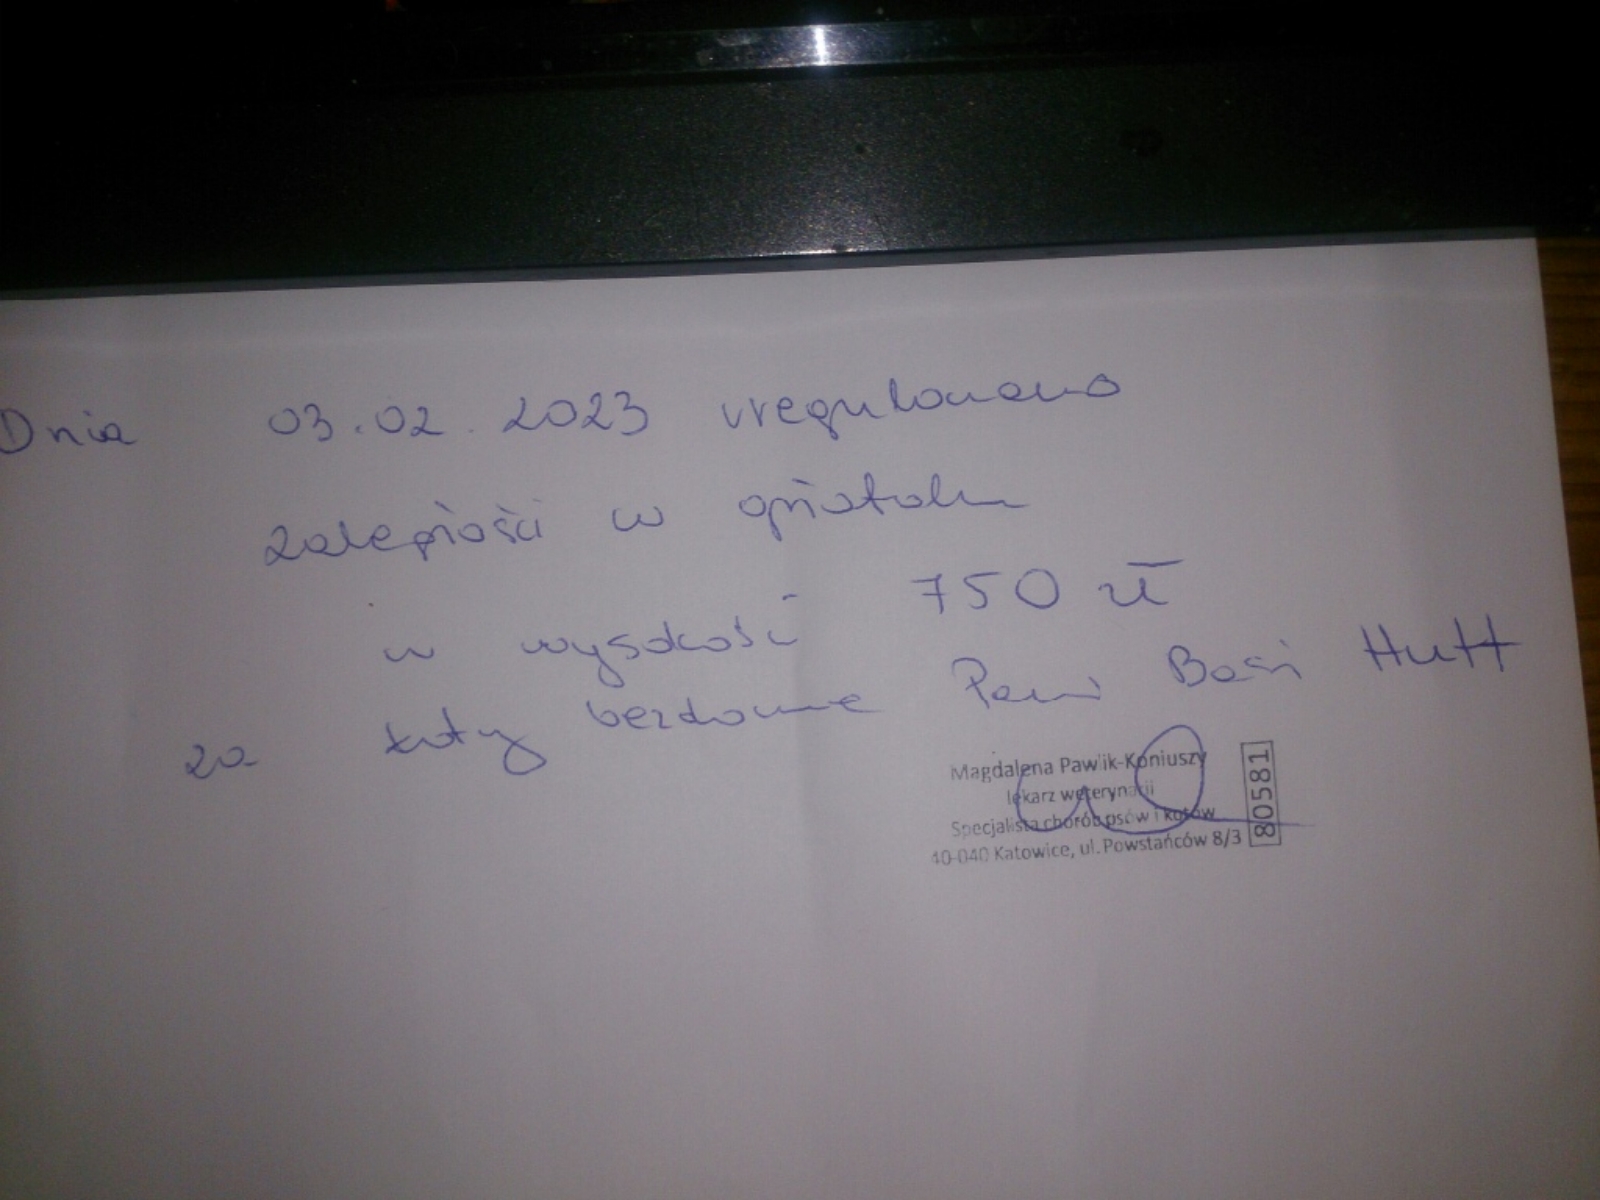 Dnia 03.02.2023 uregulowano
zaległości w gnatolu
w wysokości 750 zł
za koty bezdomne Pani Basi Hutt
Magdalena Pawlik-Koniuszy
lekarz weterynarii
Specjalista chorób psów i kotów
40-040 Katowice, ul. Powstańców 8/3
80581